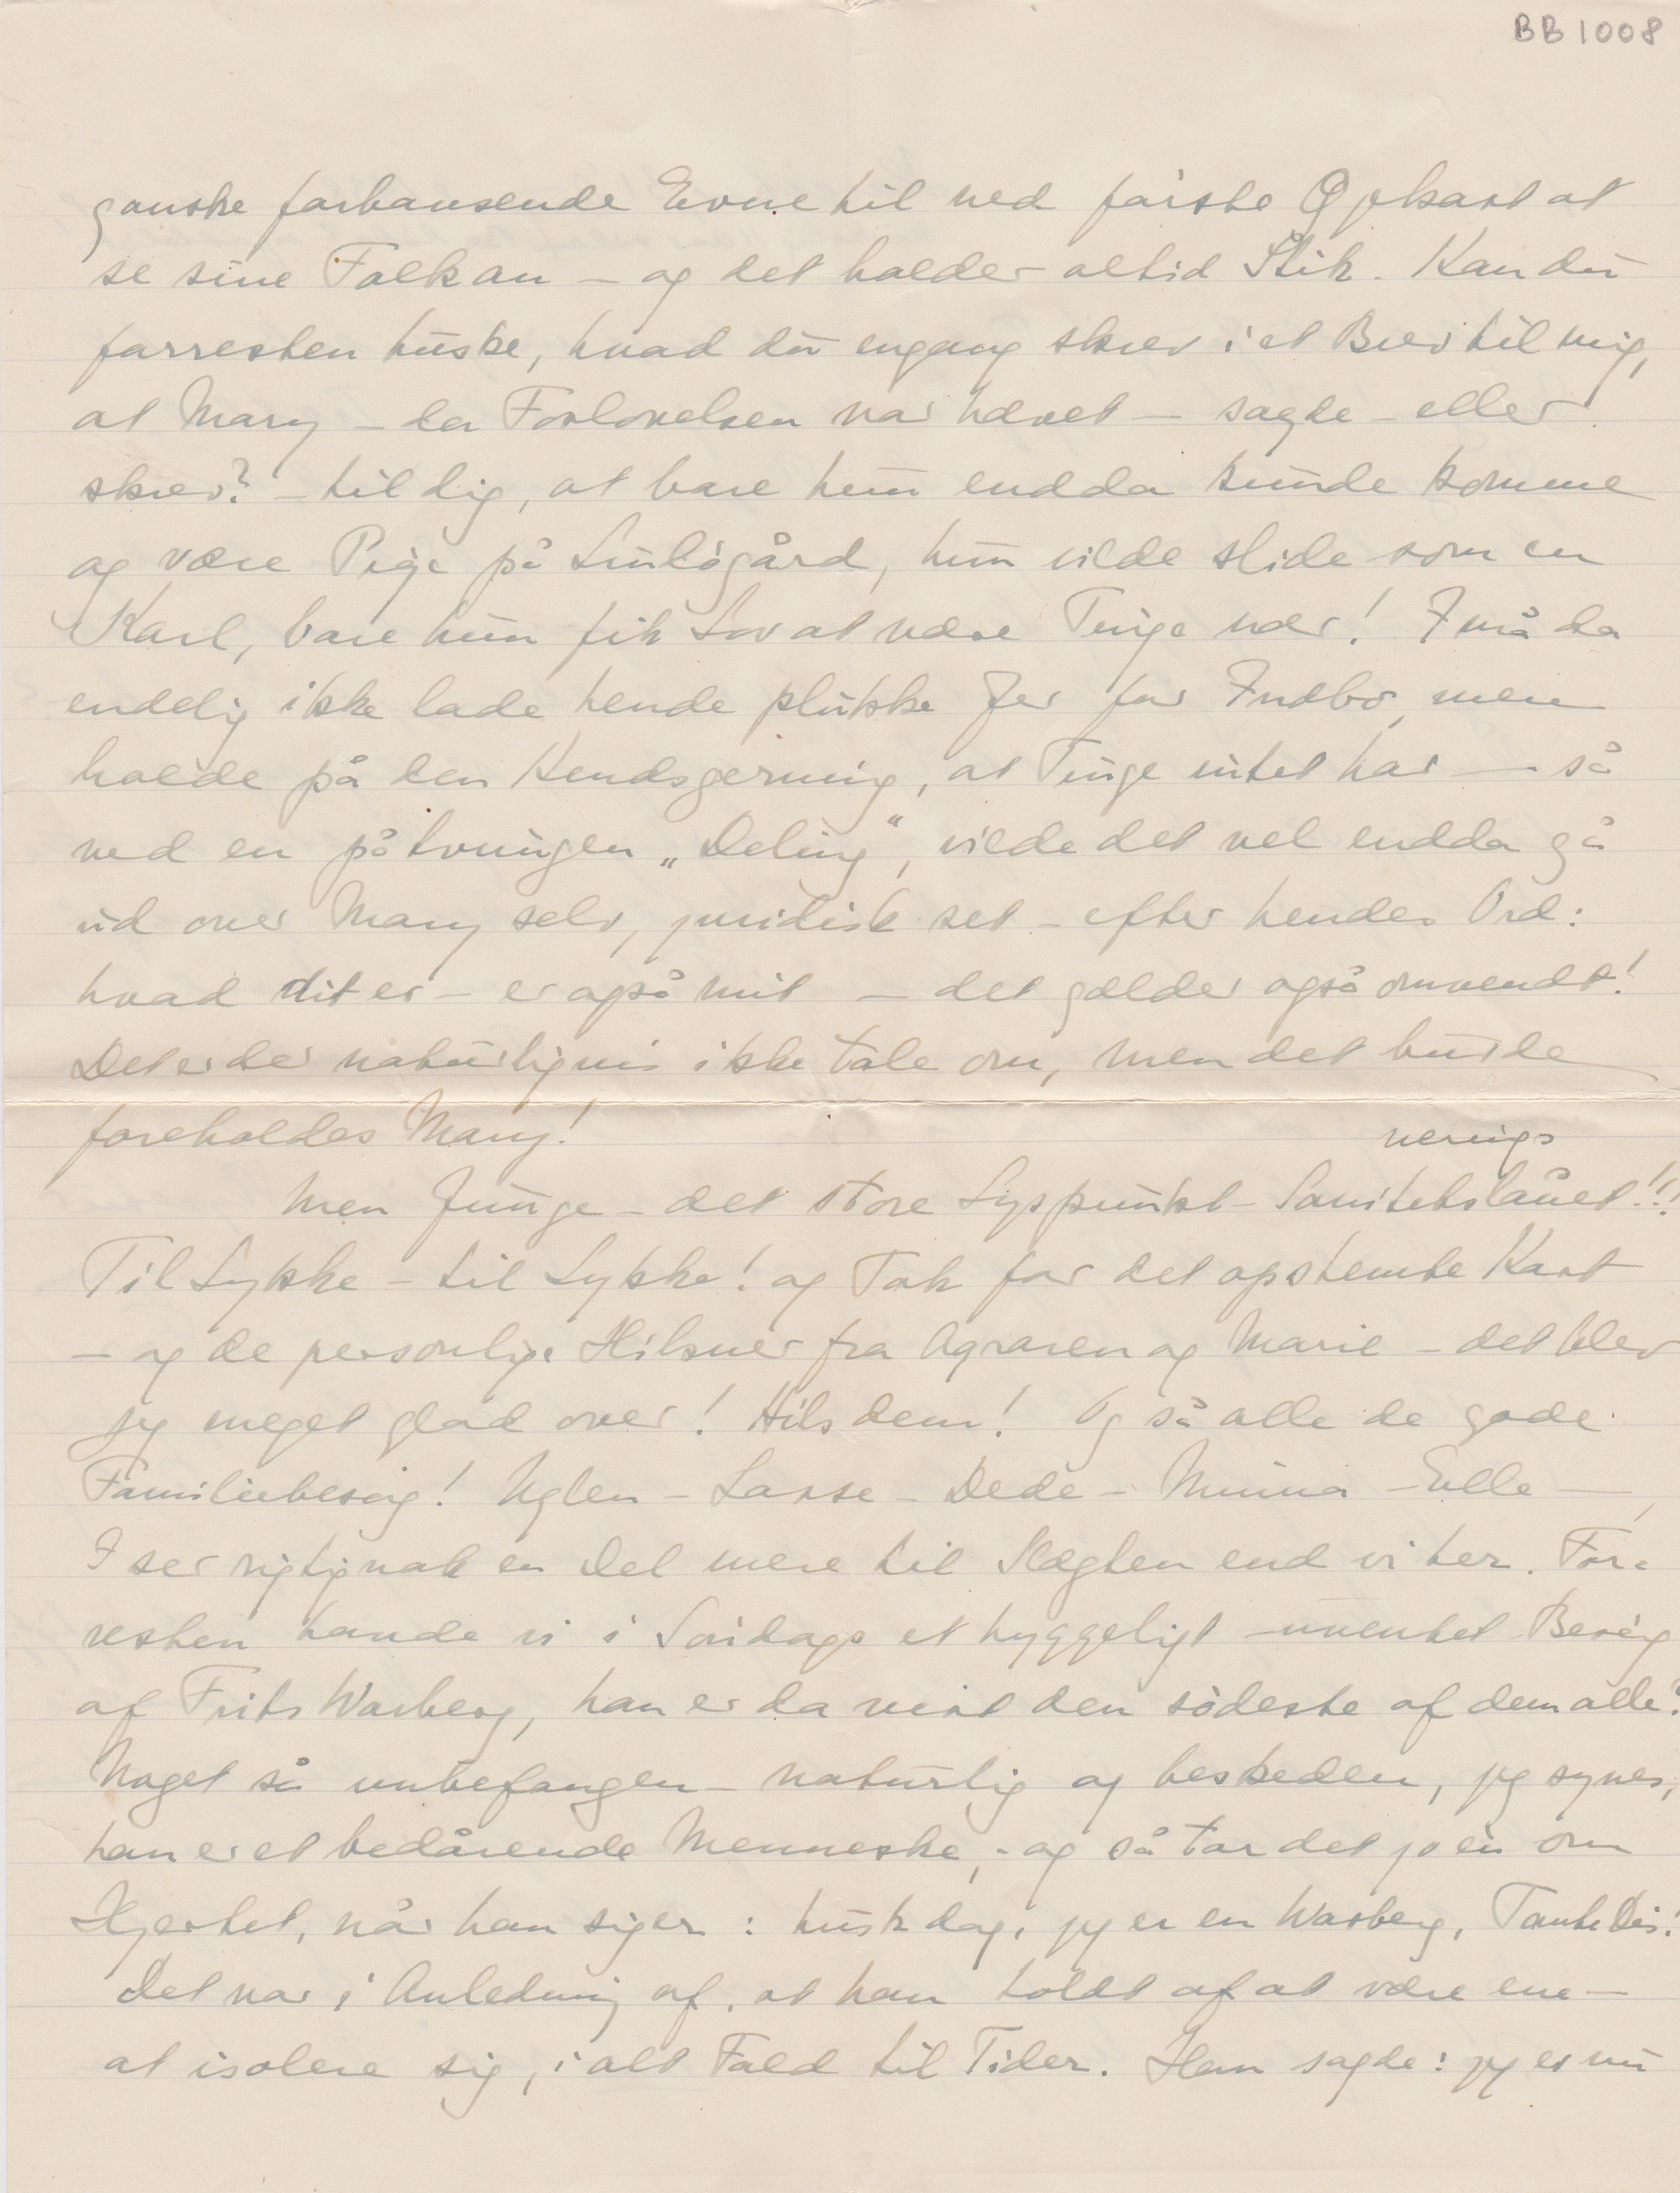 BB1008
ganske forbausende Evne til ved første Øjekast at
se sine Folk an – og det holder altid Stik. Kan du
forresten huske, hvad du engang skrev i et Brev til mig,
at Mary – da Forlovelsen var hævet – sagde – eller
skrev? – til dig, at bare hun endda kunde komme
og være Pige på Lindøgård, hun vilde slide som en
Karl, bare hun fik Lov at være Tinge nær! I må da
endelig ikke lade hende plukke Jer for Indbo, men
holde på den Kendsgerning, at Tinge intet har – så
ved en påtvungen „Deling“, vilde det vel endda gå
ud over Mary selv, juridisk set – efter hendes Ord:
hvad dit er – er også mit – det gælder også omvendt!
Det er der naturligvis ikke tale om, men det burde
foreholdes Mary!
nerings
Men Junge – det store Lyspunkt – Sanitetslånet!!!
Til Lykke – til Lykke! og Tak for det opstemte Kort
– og de personlige Hilsner fra Agraren og Marie – det blev
jeg meget glad over! Hils dem! Og så alle de gode
Familiebesøg! Uglen – Lasse – Dede – Minna – Elle –,
I ser rigtignok en Del mere til Slægten end vi her. For-
resten havde vi i Søndags et hyggeligt – uventet Besøg
af Frits Warberg, han er da vist den sødeste af dem alle?
Noget så unbefangen – naturlig og beskeden, jeg synes,
han er et bedårende Menneske, – og så tar det jo én om
Hjertet, når han siger: husk dog, jeg er en Warberg, Tante Dis!
Det var i Anledning af, at han holdt af at være ene –
at isolere sig, i alt Fald til Tider. Han sagde: jeg er nu